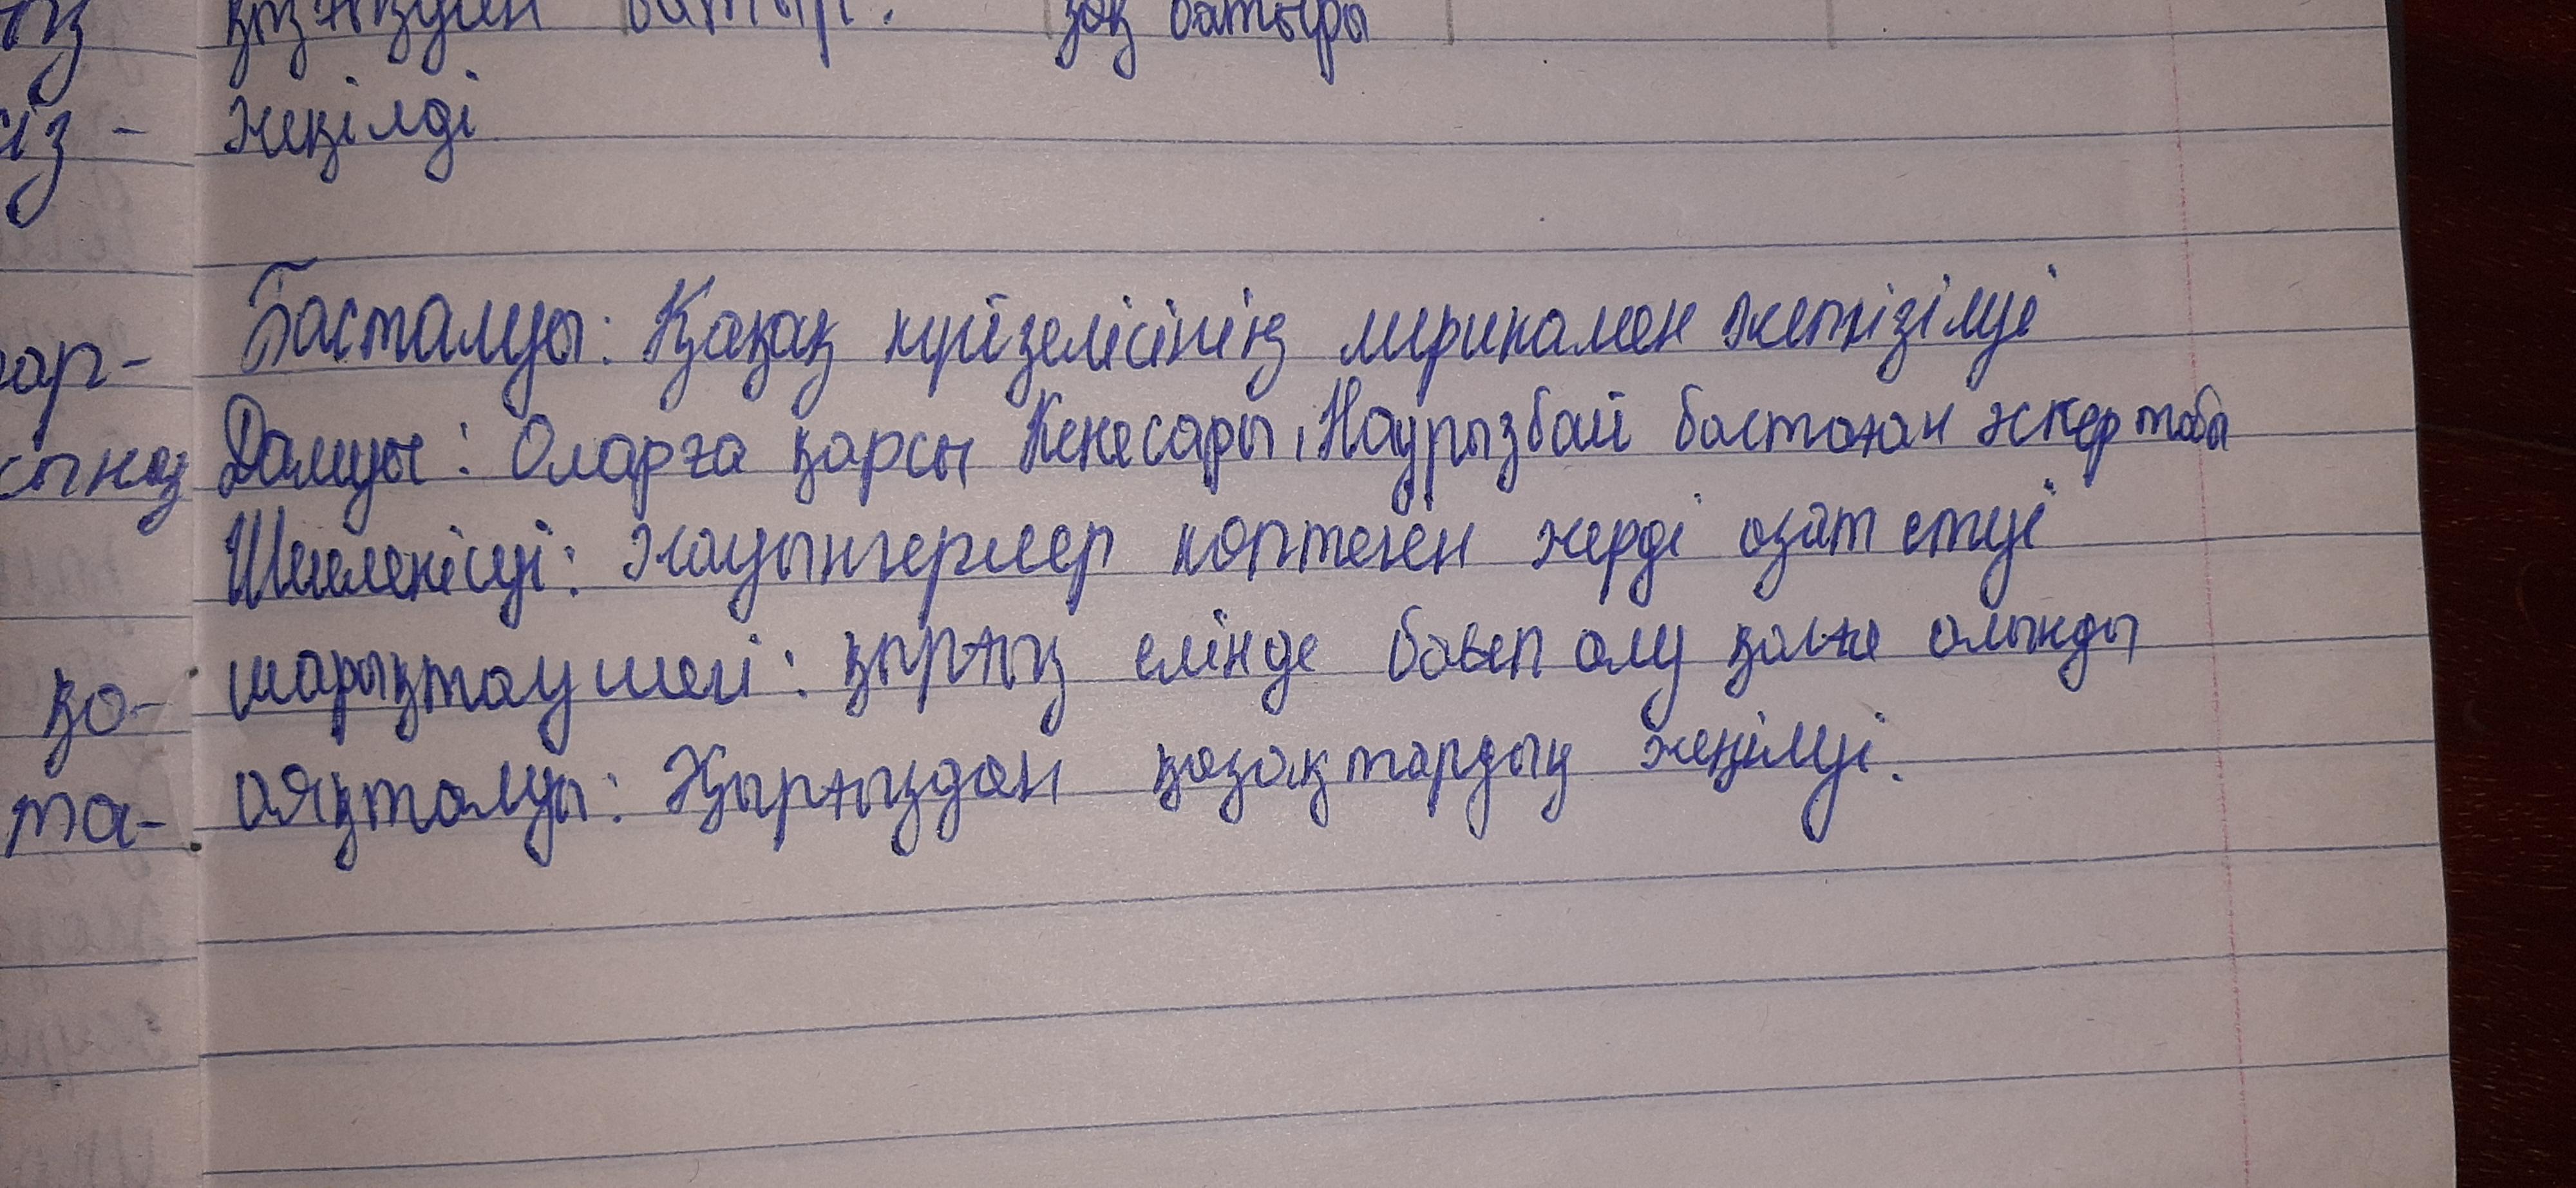 батыр. зақ батыры
із - жеңілді
Басталуы: Қазақ күйзелісінің лирикамен жеткізілуі
ар- Дамуы: Оларға қарсы Кенесары, Наурызбай бастаған әскер тобы
сының Шиеленісуі: Жауынгерлер көптеген жерді азат етуі
қо- шарықтау шегі: қырғыз елінде бәсеп алу қолға алынды
та- аяқталуы: Қырғыздан қазақтардың жеңілуі.